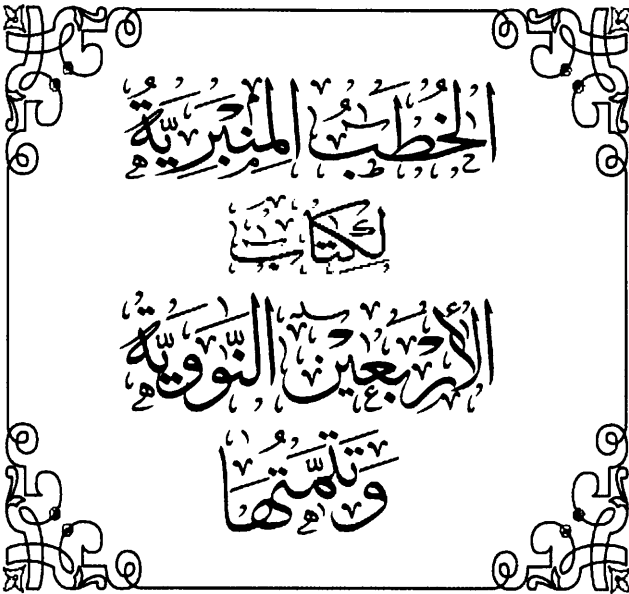 الخُطَبُ المِنْبَرِيَّةُ
لِكِتَابِ
الأَرْبَعِينَ النَّوَوِيَّةِ
وَتَتِمَّتُهَا